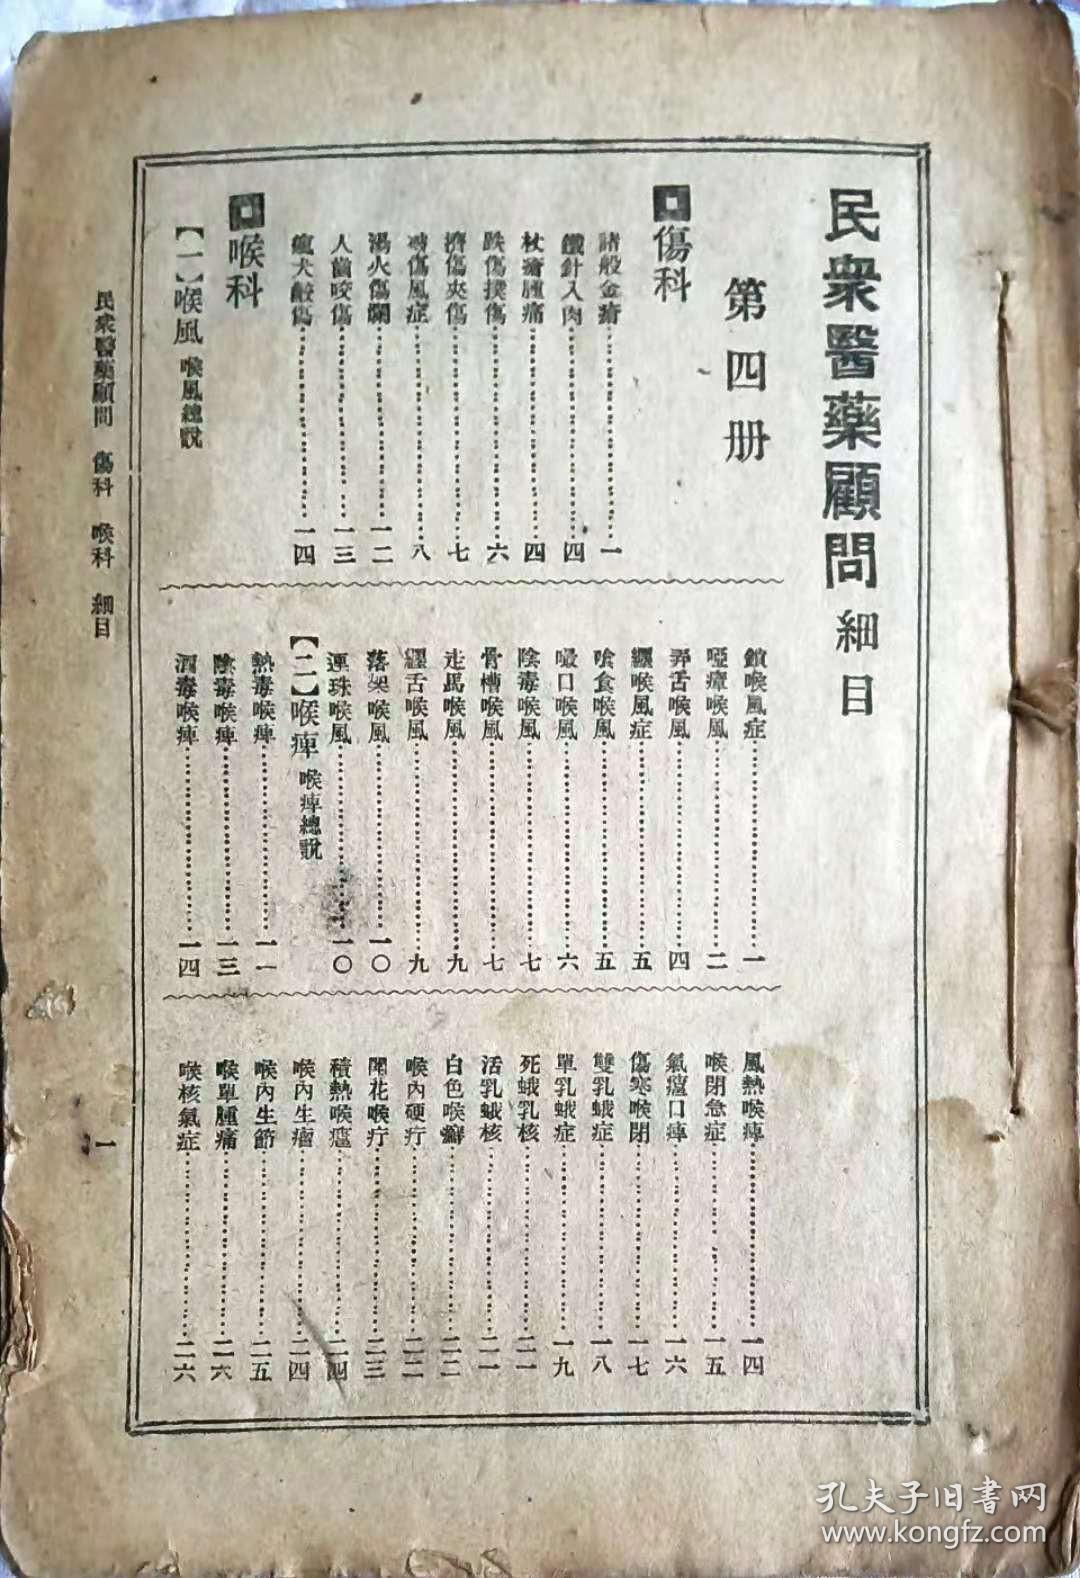 民衆醫藥顧問細目
第四册
傷科
諸般金瘡 一
鐵針入肉 四
杖瘡腫痛 四
跌傷撲傷 六
擠傷夾傷 七
傷風症 八
湯火傷爛 一二
人齒咬傷 一三
瘋犬齩傷 一四
喉科
【一】喉風 喉風總說
鎖喉風症 一
啞瘴喉風 二
弄舌喉風 四
纏喉風症 五
嗆食喉風 五
噤口喉風 六
陰毒喉風 七
骨槽喉風 七
走馬喉風 九
纏舌喉風 九
落架喉風 一〇
連珠喉風 一〇
【二】喉痺 喉痺總說
熱毒喉痺 一一
陰毒喉痺 一三
酒毒喉痺 一四
風熱喉痺 一四
喉閉急症 一五
氣瘟口痺 一六
傷寒喉閉 一七
雙乳蛾症 一八
單乳蛾症 一九
死蛾乳核 二一
活乳蛾核 二一
白色喉癬 二二
喉內硬疔 二二
開花喉疔 二三
積熱喉癰 二四
喉內生瘤 二四
喉內生節 二五
喉單腫痛 二六
喉核氣症 二六
民衆醫藥顧問 傷科 喉科 細目
一
孔夫子旧書网
www.kongfz.com